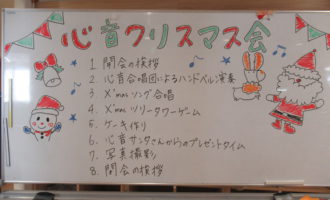 心音クリスマス会
1 開会の挨拶
2 心音合唱団によるハンドベル演奏
3 X'masソング合唱
4 X'masツリータワーゲーム
5 ケーキ作り
6 心音サンタさんからのプレゼントタイム
7 写真撮影
8 閉会の挨拶